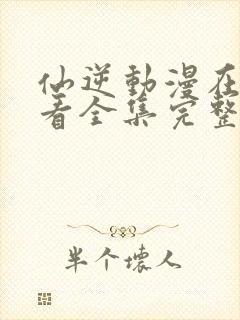 仙逆動漫在
看全集完整
半个壞人